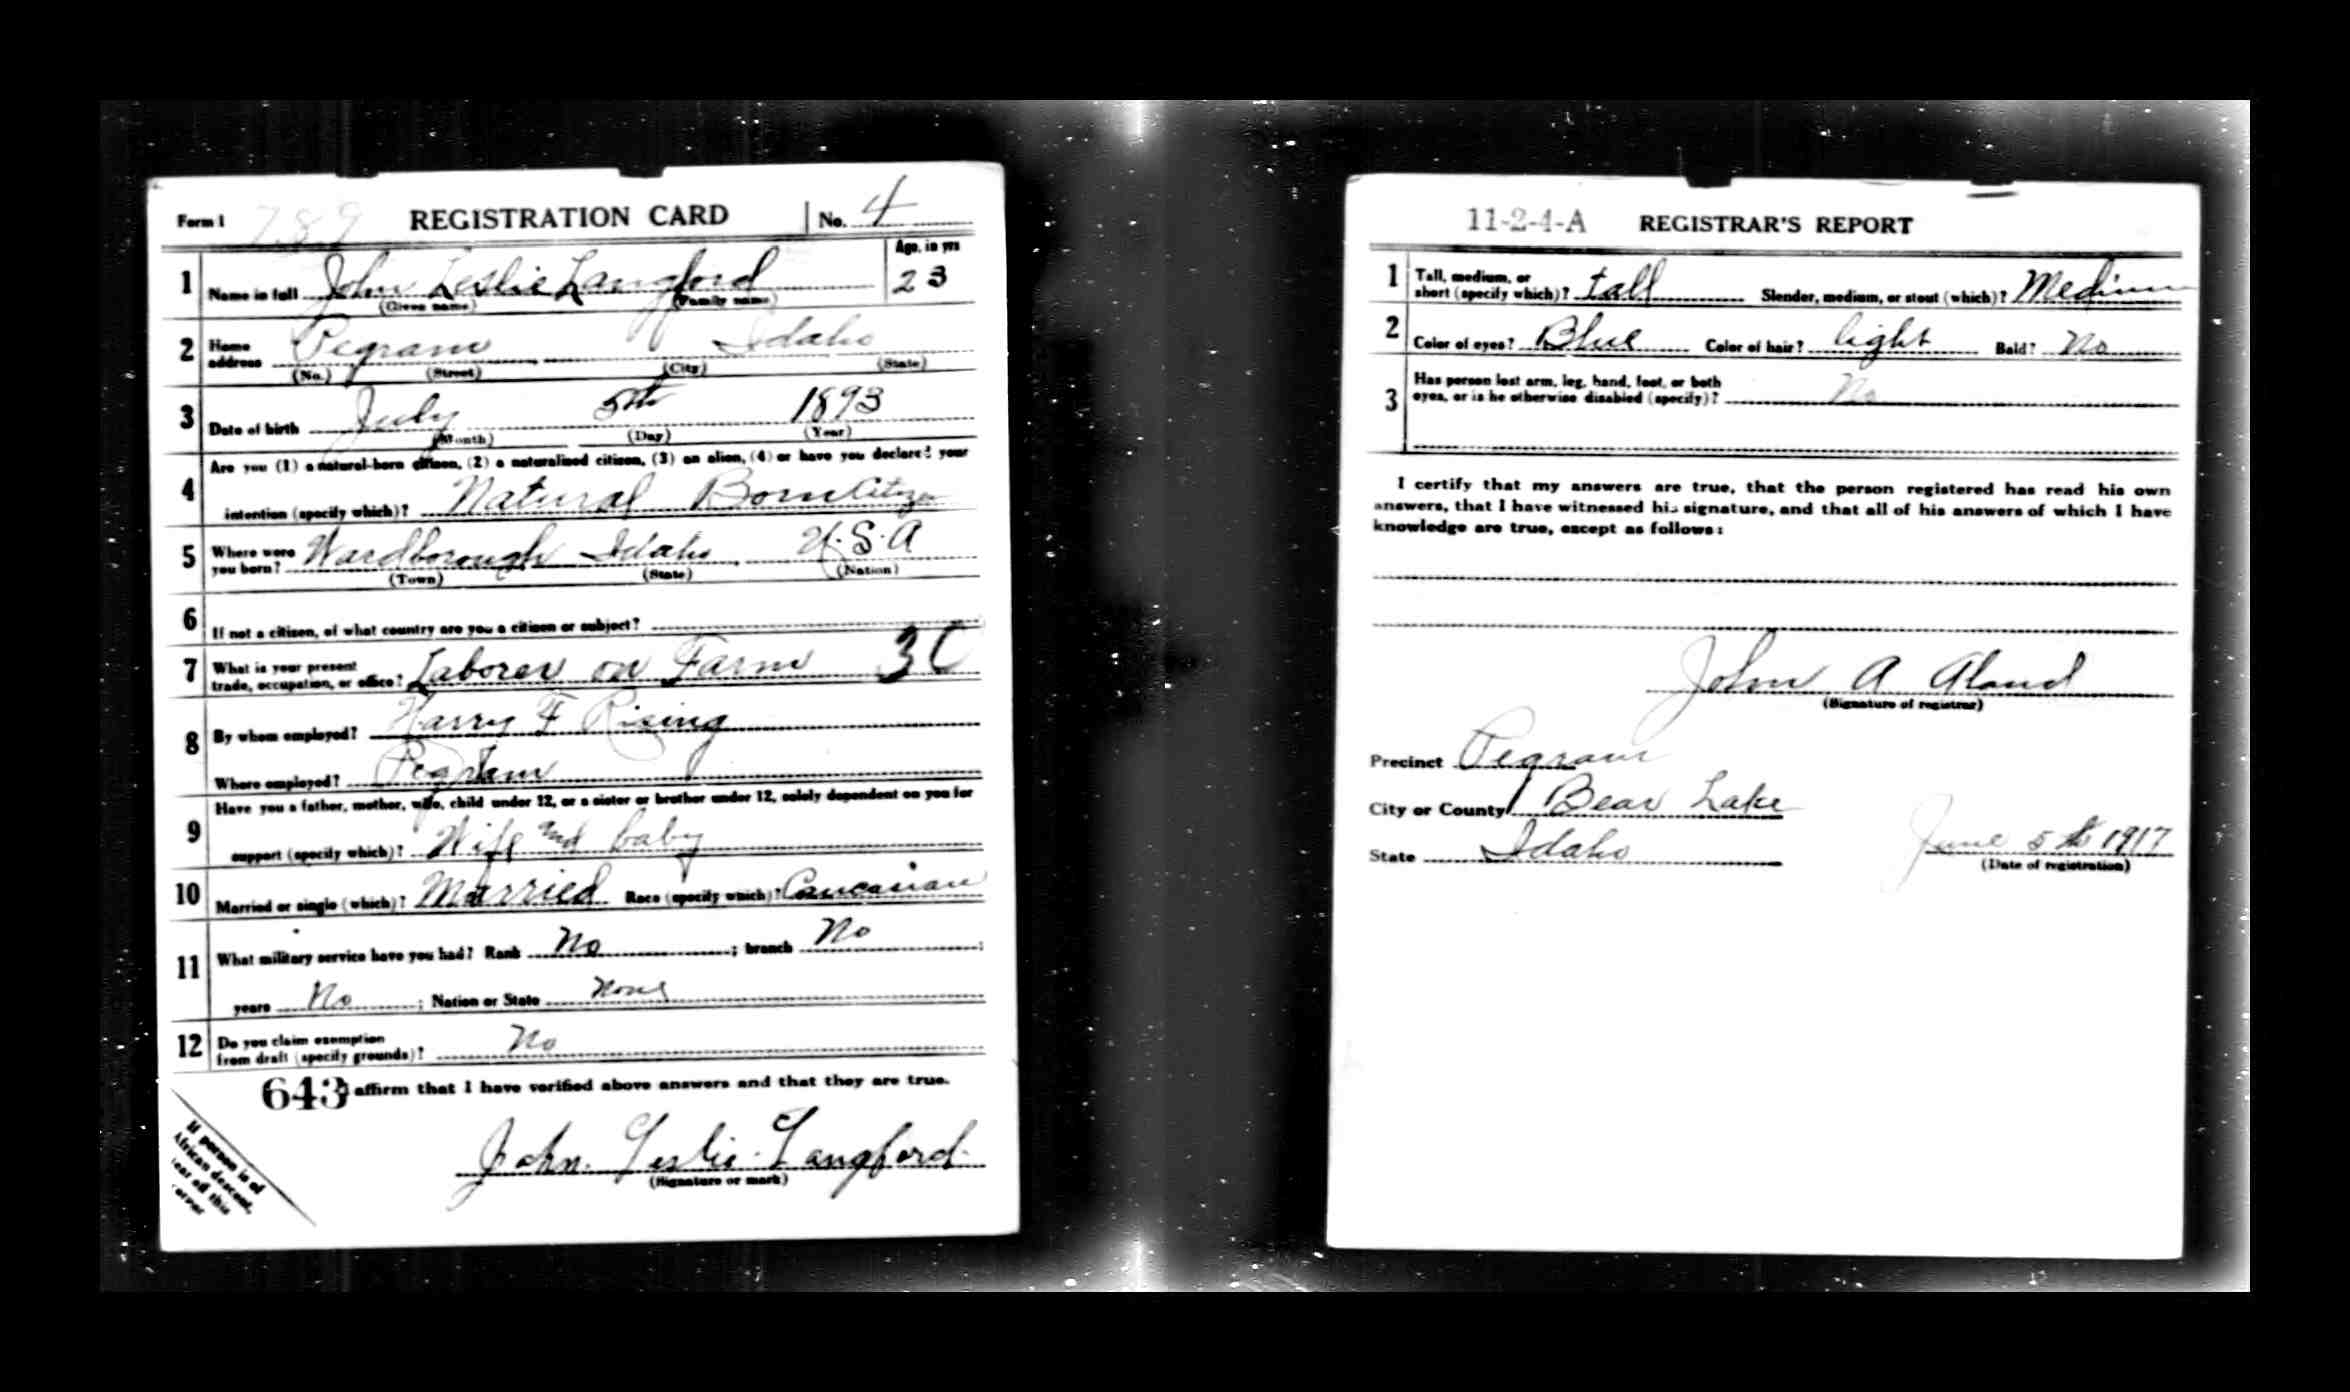 Form 1 789 REGISTRATION CARD No. 4
Age, in yrs
1 Name in full John Leslie Langford 23
(Given name) (Family name)
2 Home address Pegram Idaho
(No.) (Street) (City) (State)
3 Date of birth July 5th 1893
(Month) (Day) (Year)
4 Are you (1) a natural-born citizen, (2) a naturalized citizen, (3) an alien, (4) or have you declared your
intention (specify which)? Natural Born Citizen
5 Where were you born? Wardborough Idaho U.S.A
(Town) (State) (Nation)
6 If not a citizen, of what country are you a citizen or subject?
7 What is your present trade, occupation, or office? Laborer on Farm 30
8 By whom employed? Harry F Rising
Where employed? Pegram
9 Have you a father, mother, wife, child under 12, or a sister or brother under 12, solely dependent on you for
support (specify which)? Wife and baby
10 Married or single (which)? Married Race (specify which)? Caucasian
11 What military service have you had? Rank No ; branch No ;
years No ; Nation or State None
12 Do you claim exemption from draft (specify grounds)? No
643 I affirm that I have verified above answers and that they are true.
John. Leslie. Langford.
(Signature or mark)
If person is of
African descent,
tear off this
corner
11-2-4-A REGISTRAR'S REPORT
1 Tall, medium, or short (specify which)? tall Slender, medium, or stout (which)? Medium
2 Color of eyes? Blue Color of hair? light Bald? No
3 Has person lost arm, leg, hand, foot, or both
eyes, or is he otherwise disabled (specify)? No
I certify that my answers are true, that the person registered has read his own
answers, that I have witnessed his signature, and that all of his answers of which I have
knowledge are true, except as follows:
John A Aland
(Signature of registrar)
Precinct Pegram
City or County Bear Lake
State Idaho June 5th 1917
(Date of registration)